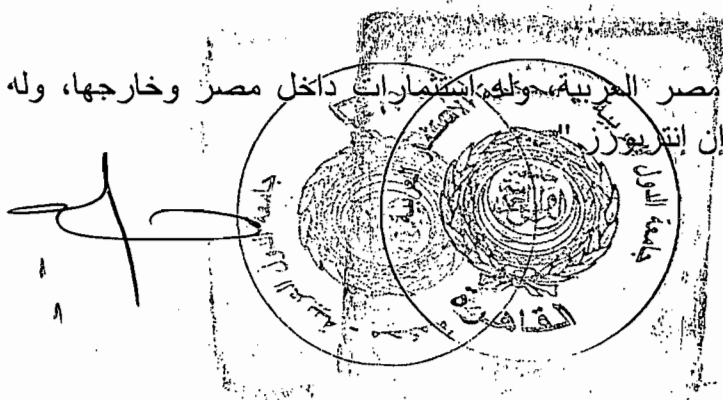 مصر العربية، وله استثمارات داخل مصر وخارجها، وله
إن إنتربورز."
جامعة الدول العربية
جامعة الدول العربية
القاهرة